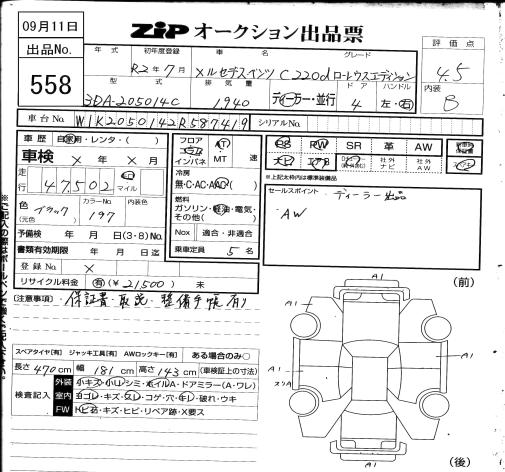 09月11日
ZIP オークション出品票
出品No.
558
年式 初年度登録 車名 グレード
R2年7月 メルセデスベンツ C220d ローレウスエディション
型式 排気量 ドア ハンドル
3DA-205014C 1940 ディーラー・並行 4 左・右
評価点
4.5
内装
B
車台No. W1K2050142R587419 シリアルNo.
車歴 自家用・レンタ・( )
車検 × 年 × 月
走行 47502 km マイル
色 (元色) カラーNo. 197 内装色
予備検 年 月 日(3・8)No.
書類有効期限 年 月 日迄
登録No. ×
リサイクル料金 有(¥21500) 未
フロア コラム インパネ AT MT 速
冷房
無・C・AC・AAC
燃料
ガソリン・軽油・電気・その他( )
Nox 適合・非適合
乗車定員 5名
PS PW SR 革 AW
ナビ エアB 社外ナビ 社外AW
※上記太枠内は標準装備品
セールスポイント ディーラー出品
・AW
[注意事項] 保証書・取説・整備手帳有り
スペアタイヤ[有] ジャッキ工具[有] AWロックキー[有] ある場合のみ○
長さ470cm 幅181cm 高さ143cm (車検証上の寸法)
検査記入
外装 小キズ・小凹・シミ・ホイルA・ドアミラー(A・ワレ)
室内 ヨゴレ・キズ・スレ・コゲ・穴・キレ・破れ・ウキ
FW トビ石・キズ・ヒビ・リペア跡・X要ス
(前)
A1
A1 A1
A1 A1
A1
(後)
※ご記入の際はボールペンで強くご記入下さい。